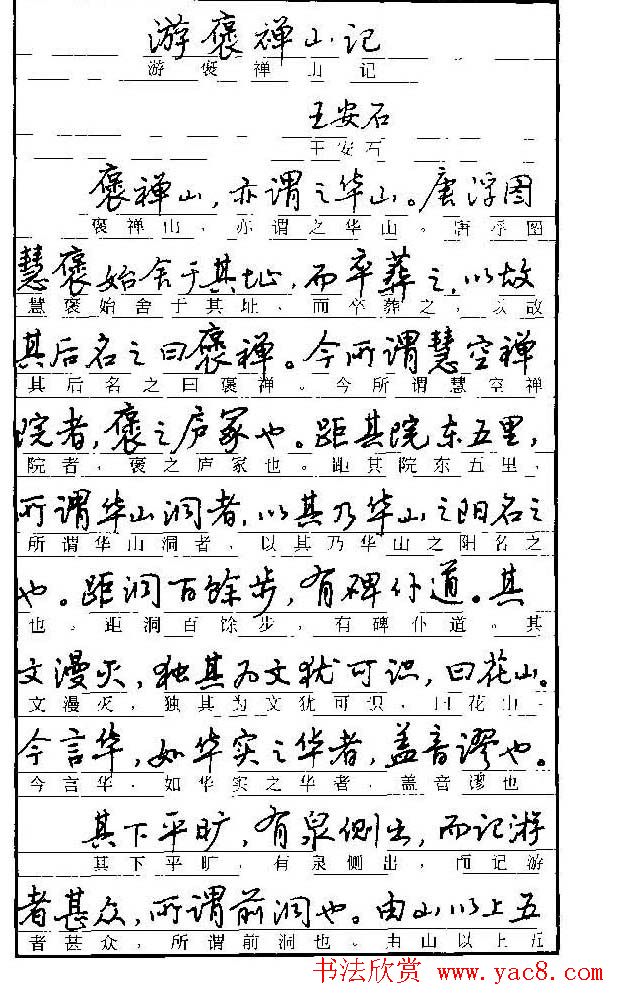 游褒禅山记
游褒禅山记
王安石
王安石
褒禅山,亦谓之华山。唐浮图
褒禅山,亦谓之华山。唐浮图
慧褒始舍于其址,而卒葬之,以故
慧褒始舍于其址,而卒葬之,以故
其后名之曰褒禅。今所谓慧空禅
其后名之曰褒禅。今所谓慧空禅
院者,褒之庐冢也。距其院东五里,
院者,褒之庐冢也。距其院东五里,
所谓华山洞者,以其乃华山之阳名之
所谓华山洞者,以其乃华山之阳名之
也。距洞百馀步,有碑仆道。其
也。距洞百馀步,有碑仆道。其
文漫灭,独其为文犹可识,曰花山。
文漫灭,独其为文犹可识,曰花山。
今言华,如华实之华者,盖音谬也。
今言华,如华实之华者,盖音谬也
其下平旷,有泉侧出,而记游
其下平旷,有泉侧出,而记游
者甚众,所谓前洞也。由山以上五
者甚众,所谓前洞也。由山以上五
书法欣赏 www.yac8.com